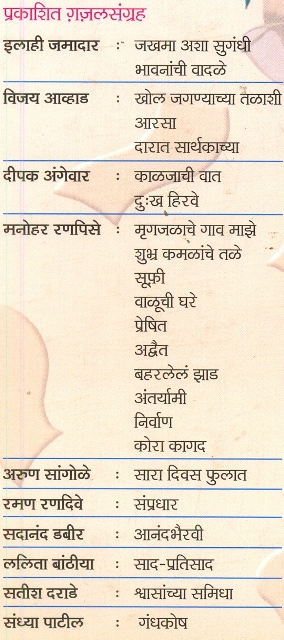 प्रकाशित ग़ज़लसंग्रह
इलाही जमादार : जखमा अशा सुगंधी
भावनांची वादळे
विजय आव्हाड : खोल जगण्याच्या तळाशी
आरसा
दारात सार्थकाच्या
दीपक अंगेवार : काळजाची वात
दुःख हिरवे
मनोहर रणपिसे : मृगजळाचे गाव माझे
शुभ्र कमळांचे तळे
सूफ़ी
वाळूची घरे
प्रेषित
अद्वैत
बहरलेलं झाड
अंतर्यामी
निर्वाण
कोरा कागद
अरुण सांगोळे : सारा दिवस फुलात
रमण रणदिवे : संप्रधार
सदानंद डबीर : आनंदभैरवी
ललिता बांठीया : साद-प्रतिसाद
सतीश दराडे : श्वासांच्या समिधा
संध्या पाटील : गंधकोष